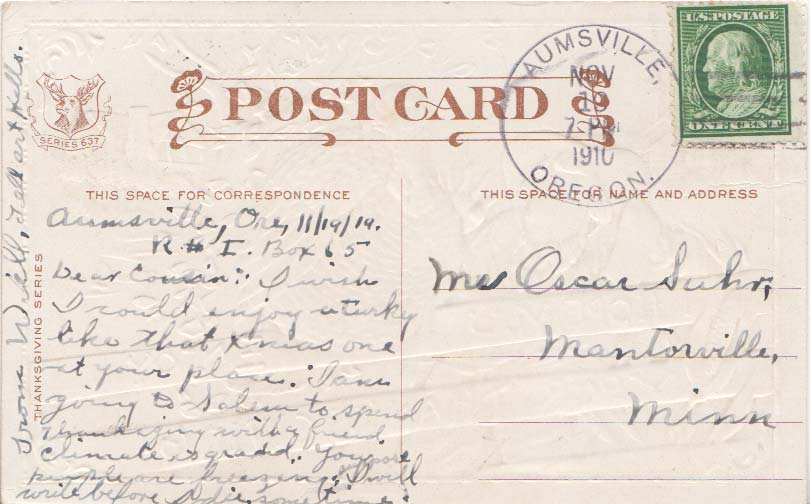 U.S. POSTAGE
ONE CENT
AUMSVILLE,
NOV
1910
OREGON.
POST CARD
SERIES 637
THIS SPACE FOR CORRESPONDENCE
THIS SPACE FOR NAME AND ADDRESS
THANKSGIVING SERIES
Aumsville, Ore, 11/19/10.
R # I. Box 65
Dear Cousin: I wish
I could enjoy a turky
like that Xmas one
at your place. I am
going to Salem to spend
Thanksgiving with a friend
Climate is grand. You
people are freezing. I will
write before some time.
From Will,
Mr Oscar Suhr,
Mantorville,
Minn